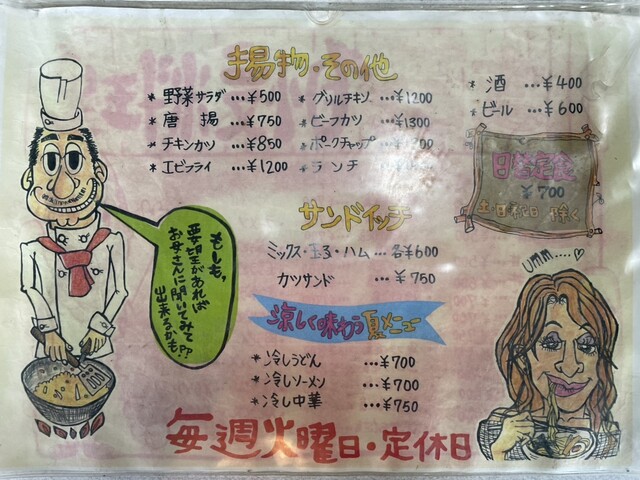 揚物・その他
* 野菜サラダ …¥500
* 唐揚 …¥750
* チキンカツ …¥850
* エビフライ …¥1200
* グリルチキン …¥1200
* ビーフカツ …¥1300
* ポークチャップ
* ランチ
* 酒 …¥400
* ビール …¥600
日替定食
¥700
土・日・祝日 除く
サンドイッチ
ミックス・玉子・ハム … 各¥600
カツサンド … ¥750
涼しく味わう夏メニュー
* 冷しうどん …¥700
* 冷しソーメン …¥700
* 冷し中華 …¥750
もしも、
要望があれば
お母さんに聞いてみて
出来るかも??
umm....♡
毎週火曜日・定休日